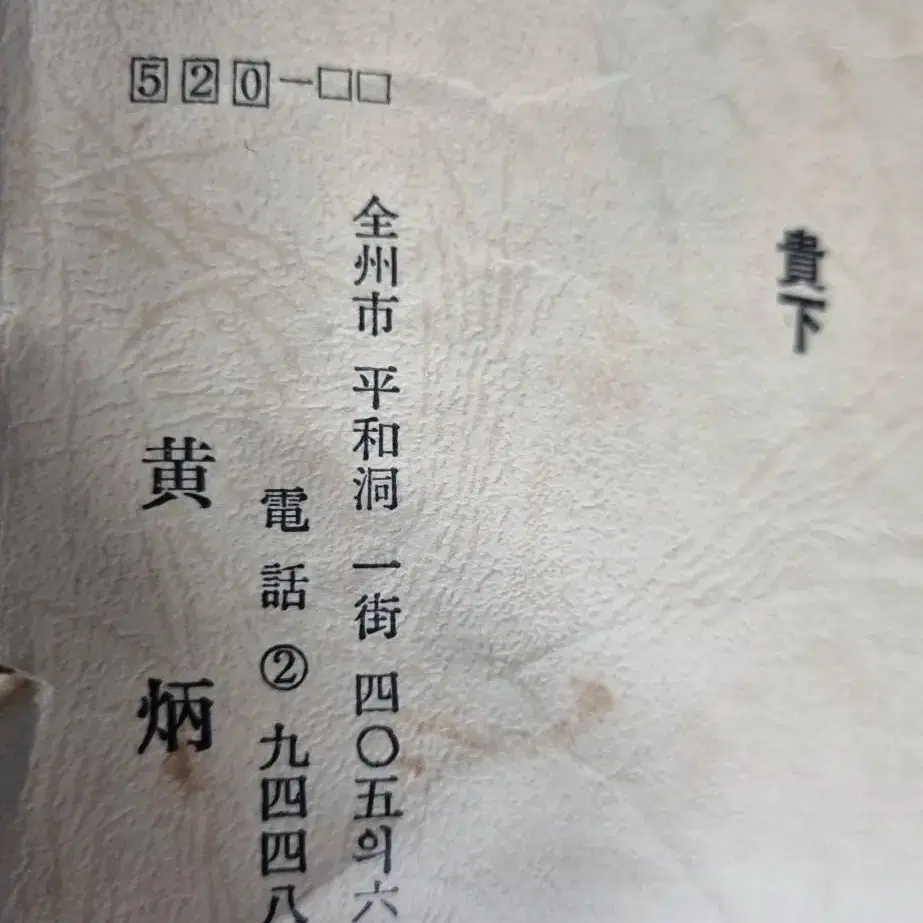 貴下
520-□□
全州市 平和洞 一街 四〇五의六
電話 ② 九四四八
黄炳